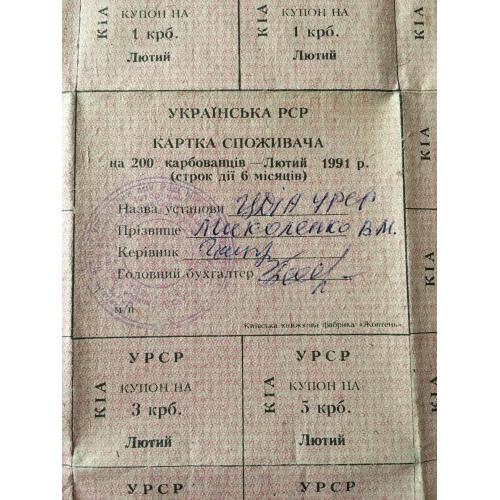 КІА КУПОН НА КІА КУПОН НА КІА
1 крб. 1 крб.
Лютий Лютий
УКРАЇНСЬКА РСР
КАРТКА СПОЖИВАЧА
на 200 карбованців — Лютий 1991 р.
(строк дії 6 місяців)
Назва установи ЦДІА УРСР
Прізвище Миколенко В.М.
Керівник
Головний бухгалтер
м/п
Київська книжкова фабрика «Жовтень»
УРСР УРСР
КІА КУПОН НА КІА КУПОН НА КІА
3 крб. 5 крб.
Лютий Лютий
УРСР УРСР